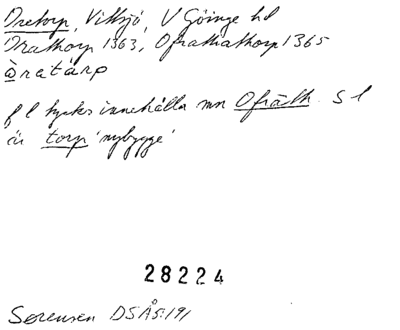 Dretorp, Vittsjö, V Göinge hd
Drathorp 1363, Ofrathathorp 1365
òratárp
f l tycks innehålla mn Ofräth. S l
är torp 'nybygge'
28224
Sørensen DSÅ5:191